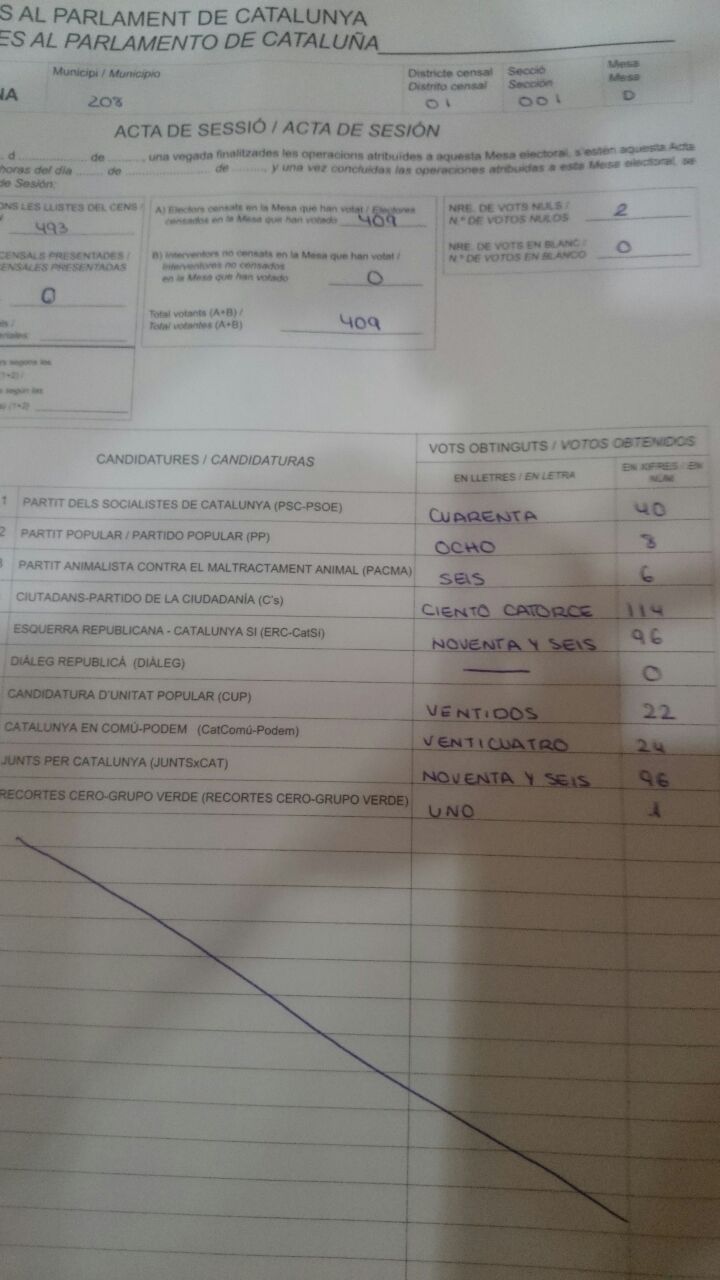 S AL PARLAMENT DE CATALUNYA
ES AL PARLAMENTO DE CATALUÑA
Municipi / Municipio
208
Districte censal
Distrito censal
01
Secció
Sección
001
Mesa
Mesa
D
ACTA DE SESSIÓ / ACTA DE SESIÓN
d de , una vegada finalitzades les operacions atribuïdes a aquesta Mesa electoral, s'estén aquesta Acta
horas del día de de , y una vez concluidas las operaciones atribuidas a esta Mesa electoral, se
de Sesión:
ONS LES LLISTES DEL CENS /
493
CENSALS PRESENTADES /
ENSALES PRESENTADAS
0
rs segons les
(1+2) /
s según las
(1+2)
A) Electors censats en la Mesa que han votat / Electores
censados en la Mesa que han votado 409
B) Interventors no censats en la Mesa que han votat /
Interventores no censados
en la Mesa que han votado 0
Total votants (A+B) /
Total votantes (A+B) 409
NRE. DE VOTS NULS /
N.º DE VOTOS NULOS 2
NRE. DE VOTS EN BLANC /
N.º DE VOTOS EN BLANCO 0
CANDIDATURES / CANDIDATURAS
VOTS OBTINGUTS / VOTOS OBTENIDOS
EN LLETRES / EN LETRA
EN XIFRES / EN
NÚM
1 PARTIT DELS SOCIALISTES DE CATALUNYA (PSC-PSOE) CUARENTA 40
2 PARTIT POPULAR / PARTIDO POPULAR (PP) OCHO 8
PARTIT ANIMALISTA CONTRA EL MALTRACTAMENT ANIMAL (PACMA) SEIS 6
CIUTADANS-PARTIDO DE LA CIUDADANÍA (C's) CIENTO CATORCE 114
ESQUERRA REPUBLICANA - CATALUNYA SI (ERC-CatSí) NOVENTA Y SEIS 96
DIÀLEG REPUBLICÀ (DIÀLEG) — 0
CANDIDATURA D'UNITAT POPULAR (CUP) VENTIDOS 22
CATALUNYA EN COMÚ-PODEM (CatComú-Podem) VENTICUATRO 24
JUNTS PER CATALUNYA (JUNTSxCAT) NOVENTA Y SEIS 96
RECORTES CERO-GRUPO VERDE (RECORTES CERO-GRUPO VERDE) UNO 1